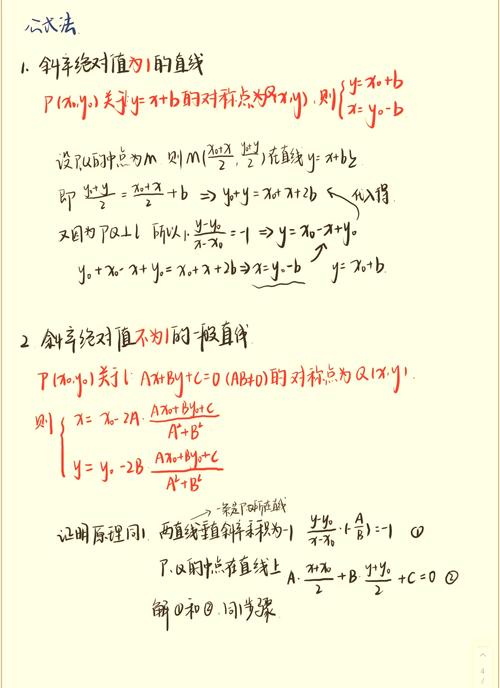 公式法
1. 斜率绝对值为1的直线
P(x₀,y₀)关于y=x+b的对称点为Q(x,y),则{y=x₀+b
x=y₀-b
设PQ的中点为M 则M(\frac{x₀+x}{2},\frac{y₀+y}{2})在直线y=x+b上
即 \frac{y₀+y}{2}=\frac{x₀+x}{2}+b ⇒ y₀+y=x₀+x+2b 代入得
又因为PQ⊥l 所以1·\frac{y-y₀}{x-x₀}=-1 ⇒ y=x₀-x+y₀
y₀+x₀-x+y₀=x₀+x+2b ⇒ x=y₀-b y=x₀+b.
2 斜率绝对值不为1的一般直线
P(x₀,y₀)关于l: Ax+By+C=0 (AB≠0)的对称点为Q(x,y).
则{x=x₀-2A·\frac{Ax₀+By₀+C}{A²+B²}
y=y₀-2B·\frac{Ax₀+By₀+C}{A²+B²}
→一条是PQ所在直线
证明原理同1. 两直线垂直斜率乘积为-1 \frac{y-y₀}{x-x₀}·(-\frac{A}{B})=-1 ①
P、Q的中点在直线上 A·\frac{x+x₀}{2}+B·\frac{y+y₀}{2}+C=0 ②
解①和②,同1步骤
4/